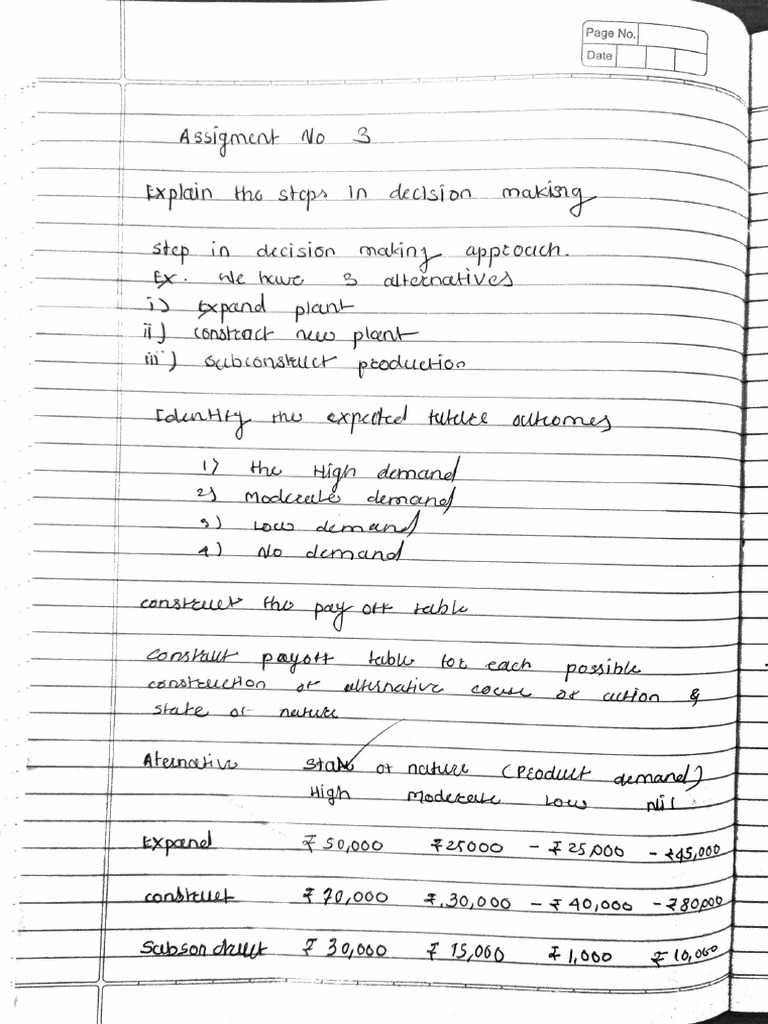 Page No.
Date
Assigment No 3
Explain the steps in decision making
step in decision making approach.
Ex. We have 3 alternatives
i) Expand plant
ii) constract new plant
iii) subconstruct production
Identify the expected future outcomes
1) the High demand
2) Moderate demand
3) Low demand
4) No demand
construct the pay off table
construct payoff table for each possible
construction of alternative couse of action &
state of nature
Aternative state of nature (Product demand)
High Moderate Low Nil
Expand ₹ 50,000 ₹ 25000 - ₹ 25,000 - ₹45,000
construct ₹ 70,000 ₹ 30,000 - ₹ 40,000 - ₹80,000
₹ 30,000 ₹ 15,000 ₹ 1,000 ₹ 10,000